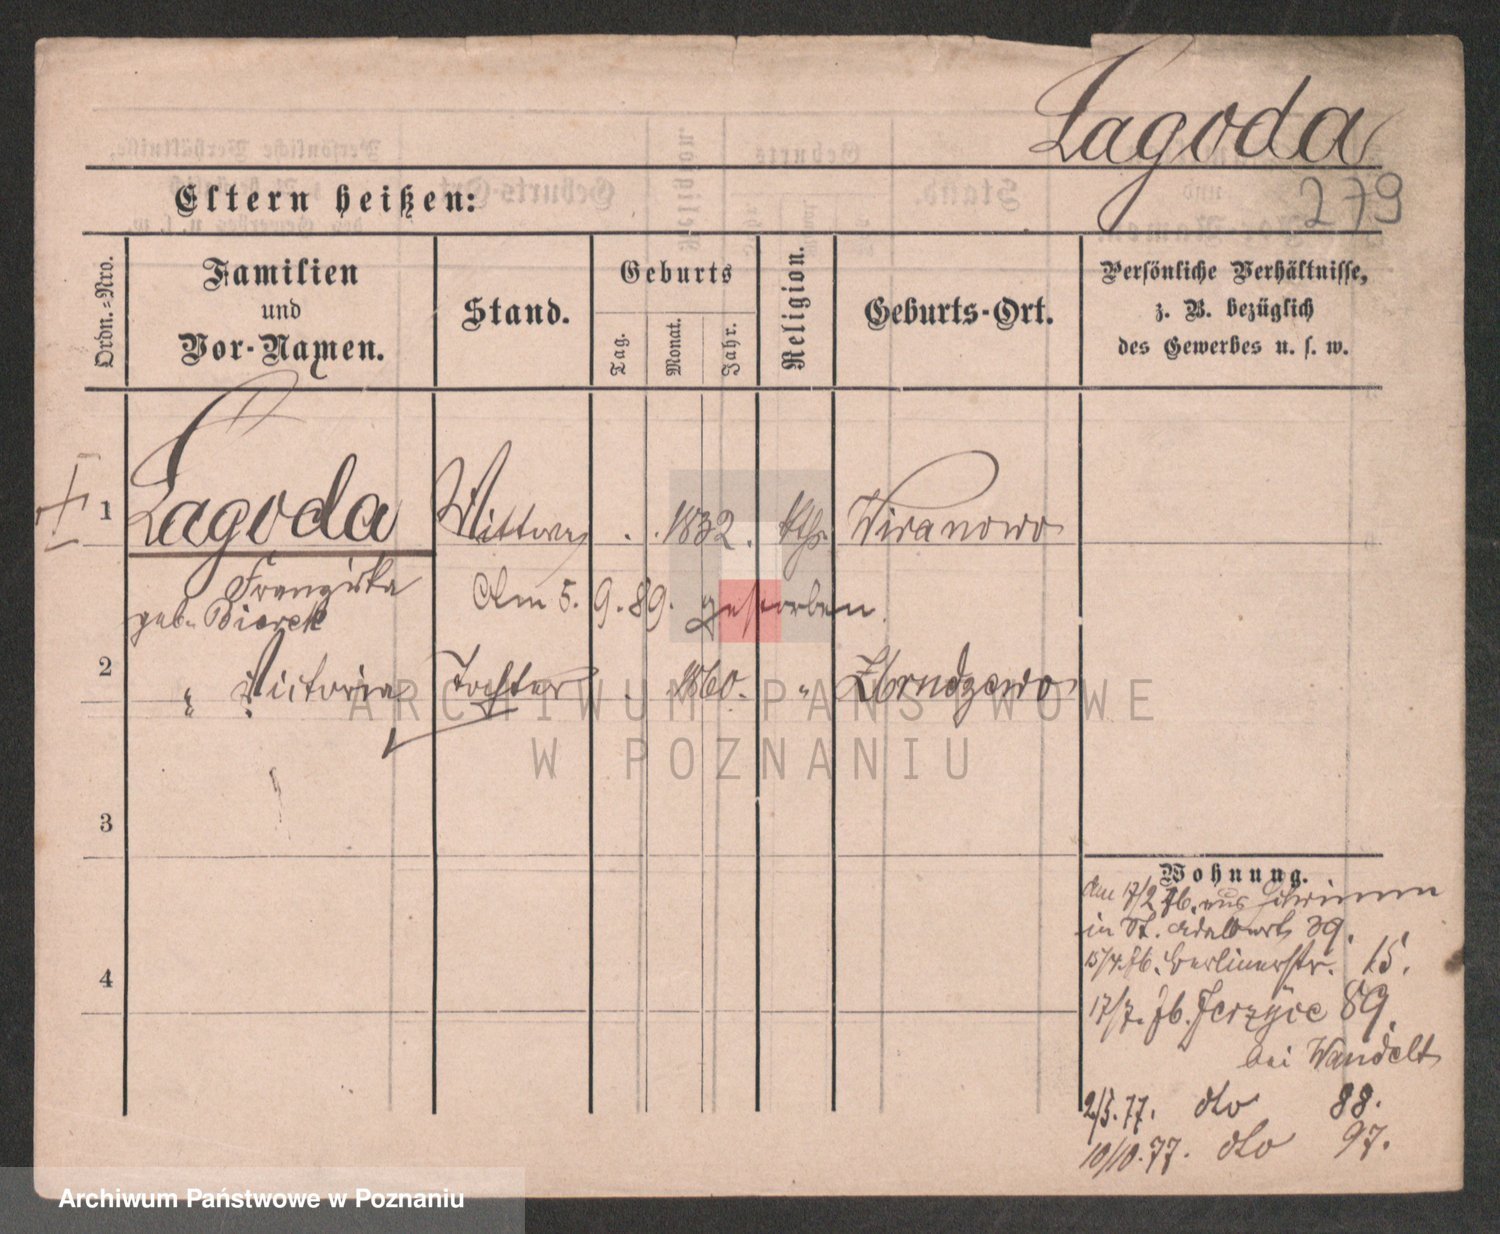 Lagoda
279
Eltern heißen:
Ordn.-Nro.
Familien
und
Vor-Namen.
Stand.
Geburts
Tag.
Monat.
Jahr.
Religion.
Geburts-Ort.
Persönliche Verhältnisse,
z. B. bezüglich
des Gewerbes u. s. w.
1 Lagoda Wittwe . . 1832. kth. Wiranowo
Franziska
geb. Biorek
Am 5. 9. 89. gestorben.
2 " Victoria Tochter . . 1860. " Zbrudzewo
3
4
Wohnung.
Am 17/2 76. aus Schrimm
in St. Adalbert 39.
15/4. 76. Berlinerstr. 15.
17/7. 76. Jerzyce 89.
bei Wandelt
2/5. 77. dto 88.
10/10. 77. dto 97.
ARCHIWUM PAŃSTWOWE
W POZNANIU
Archiwum Państwowe w Poznaniu